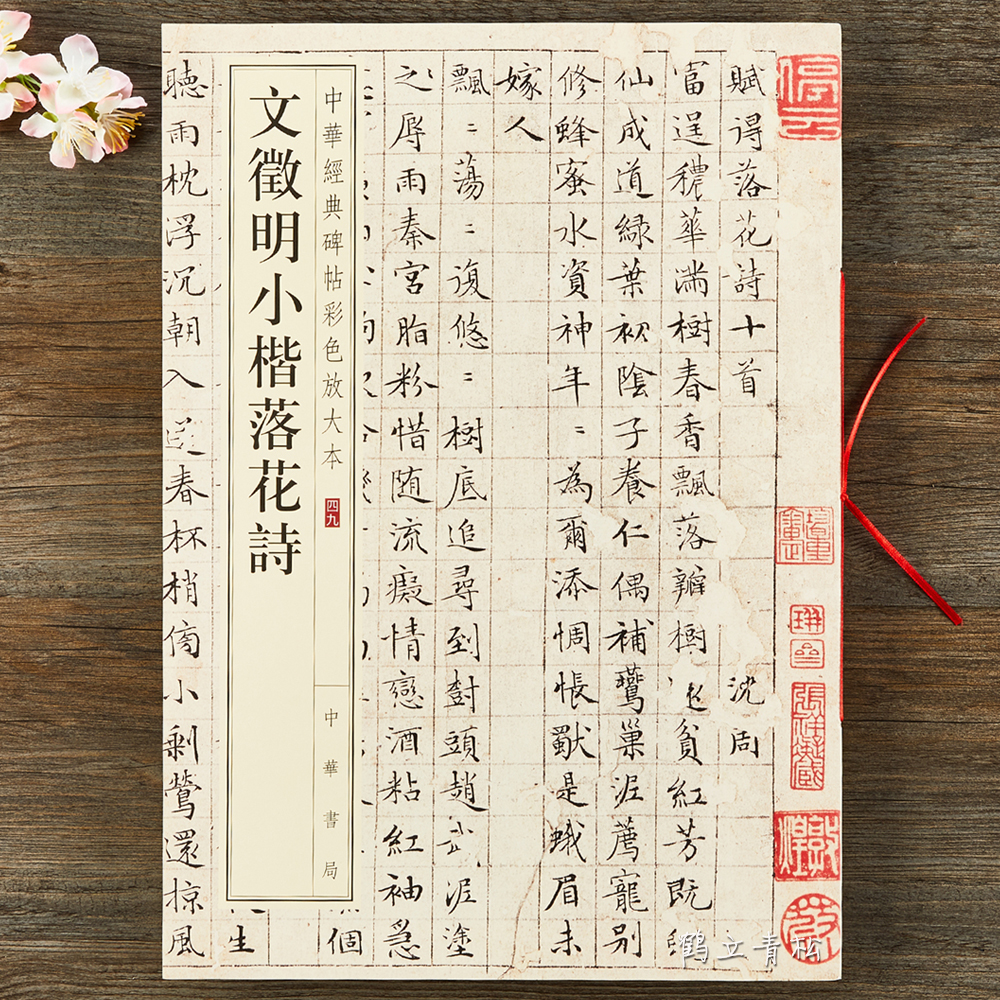 賦得落花詩十首 沈周
富逞穠華滿樹春香飄落瓣樹貧紅芳既
仙成道綠葉初陰子養仁偶補鶯巢泥薦寵別
修蜂蜜水資神年〻為爾添惆悵是蛾眉未
嫁人
飄〻蕩〻復悠〻樹底追尋到樹頭趙武泥塗
之辱雨秦宮脂粉惜随流癡情戀酒粘紅袖急
個
中華經典碑帖彩色放大本 四九
中華書局
文徵明小楷落花詩
生
聽雨枕浮沉朝入春杯梢傍小剩鶯還掠風
鶴立青松